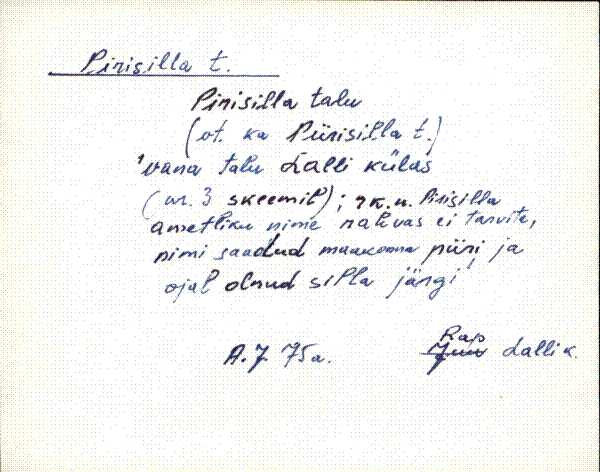 Pirisilla t.
Pirisilla talu
(vt. ka Piirisilla t.)
'vana talu Lalli külas
(nr. 3 skeemil); rk.n. Pirisilla
ametliku nime rahvas ei tarvita,
nimi saadud maakonna piiri ja
ojal olnud silla järgi'
A.J 75a.
Rap
Juu Lalli k.